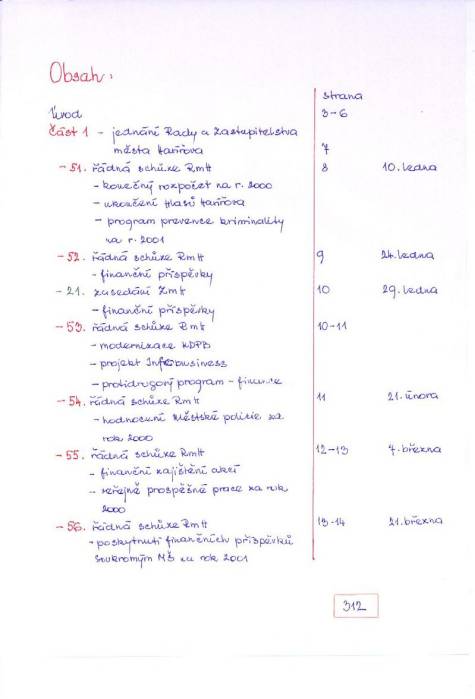 Obsah:
strana
Úvod 3-6
Část 1 - jednání Rady a Zastupitelstva
města Havířova 7
- 51. řádná schůze RmH 8 10. ledna
- konečný rozpočet na r. 2000
- ukončení Hlasů Havířova
- program prevence kriminality
na r. 2001
- 52. řádná schůze RmH 9 24. ledna
- finanční příspěvky
- 21. zasedání ZmH 10 29. ledna
- finanční příspěvky
- 53. řádná schůze RmH 10-11
- modernizace KDPB
- projekt Infobusiness
- protidrogový program - finance
- 54. řádná schůze RmH 11 21. února
- hodnocení Městské policie za
rok 2000
- 55. řádná schůze RmH 12-13 7. března
- finanční zajištění akcí
- veřejně prospěšné práce za rok
2000
- 56. řádná schůze RmH 13-14 21. března
- poskytnutí finančních příspěvků
soukromým MŠ na rok 2001
312